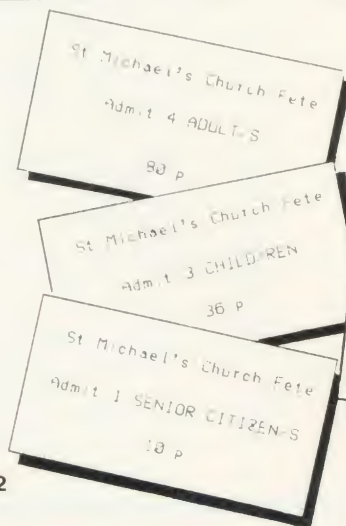 St Michael's Church Fete
Admit 4 ADULT-S
80 p
St Michael's Church Fete
Admit 3 CHILD-REN
36 p
St Michael's Church Fete
Admit 1 SENIOR CITIZEN-S
10 p
2